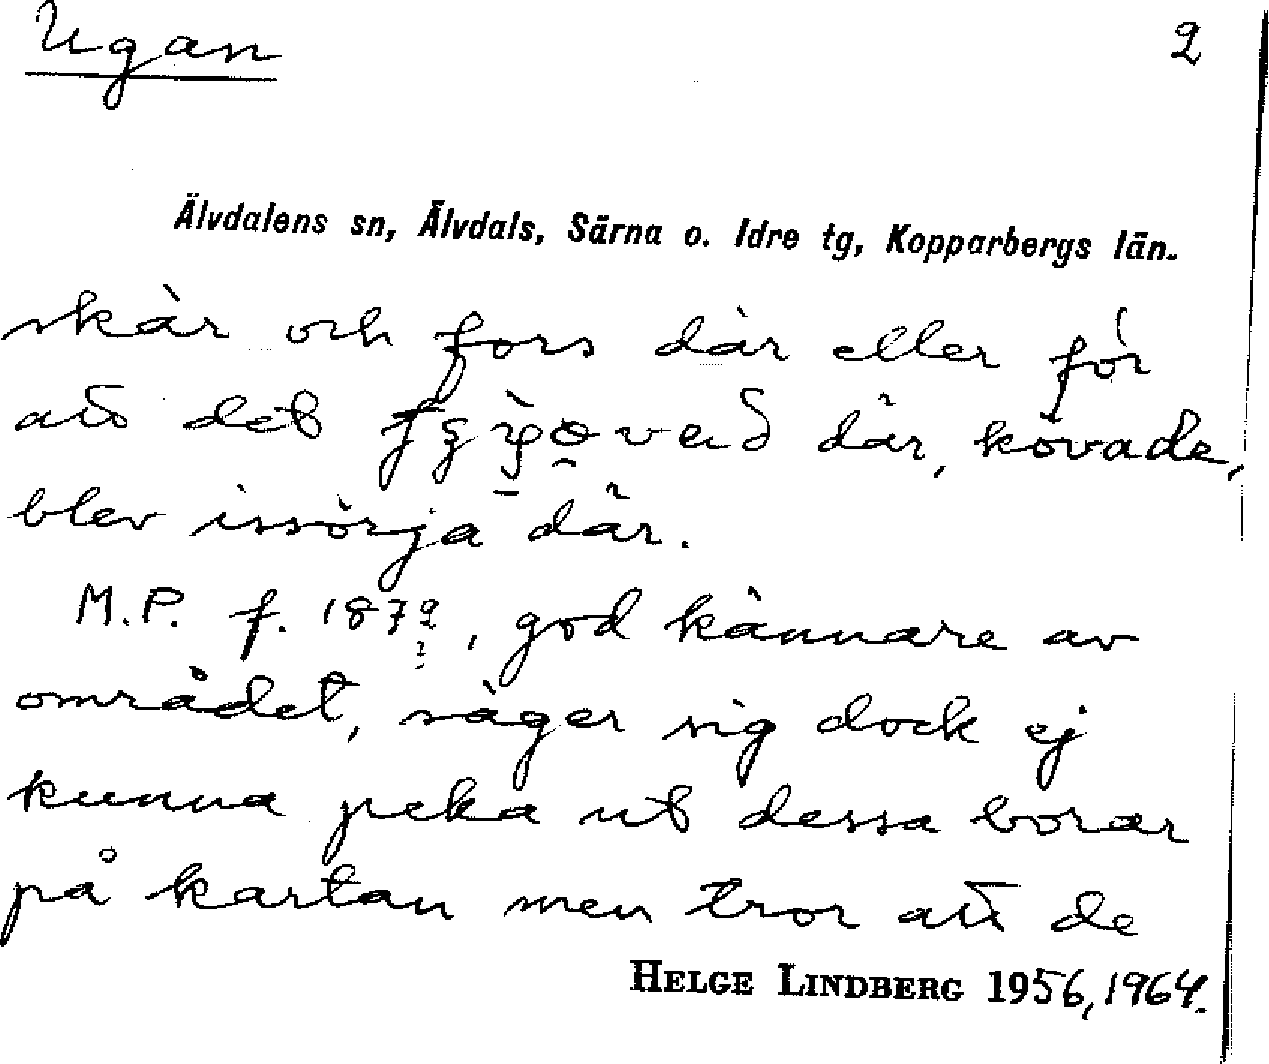 Ugan 2
Älvdalens sn, Älvdals, Särna o. Idre tg, Kopparbergs län.
skär och fors där eller för
att det där, kövade,
blev issörja där.
M.P. f. 1872, god kännare av
området, säger sig dock ej
kunna peka ut dessa borar
på kartan men tror att de
HELGE LINDBERG 1956, 1964.